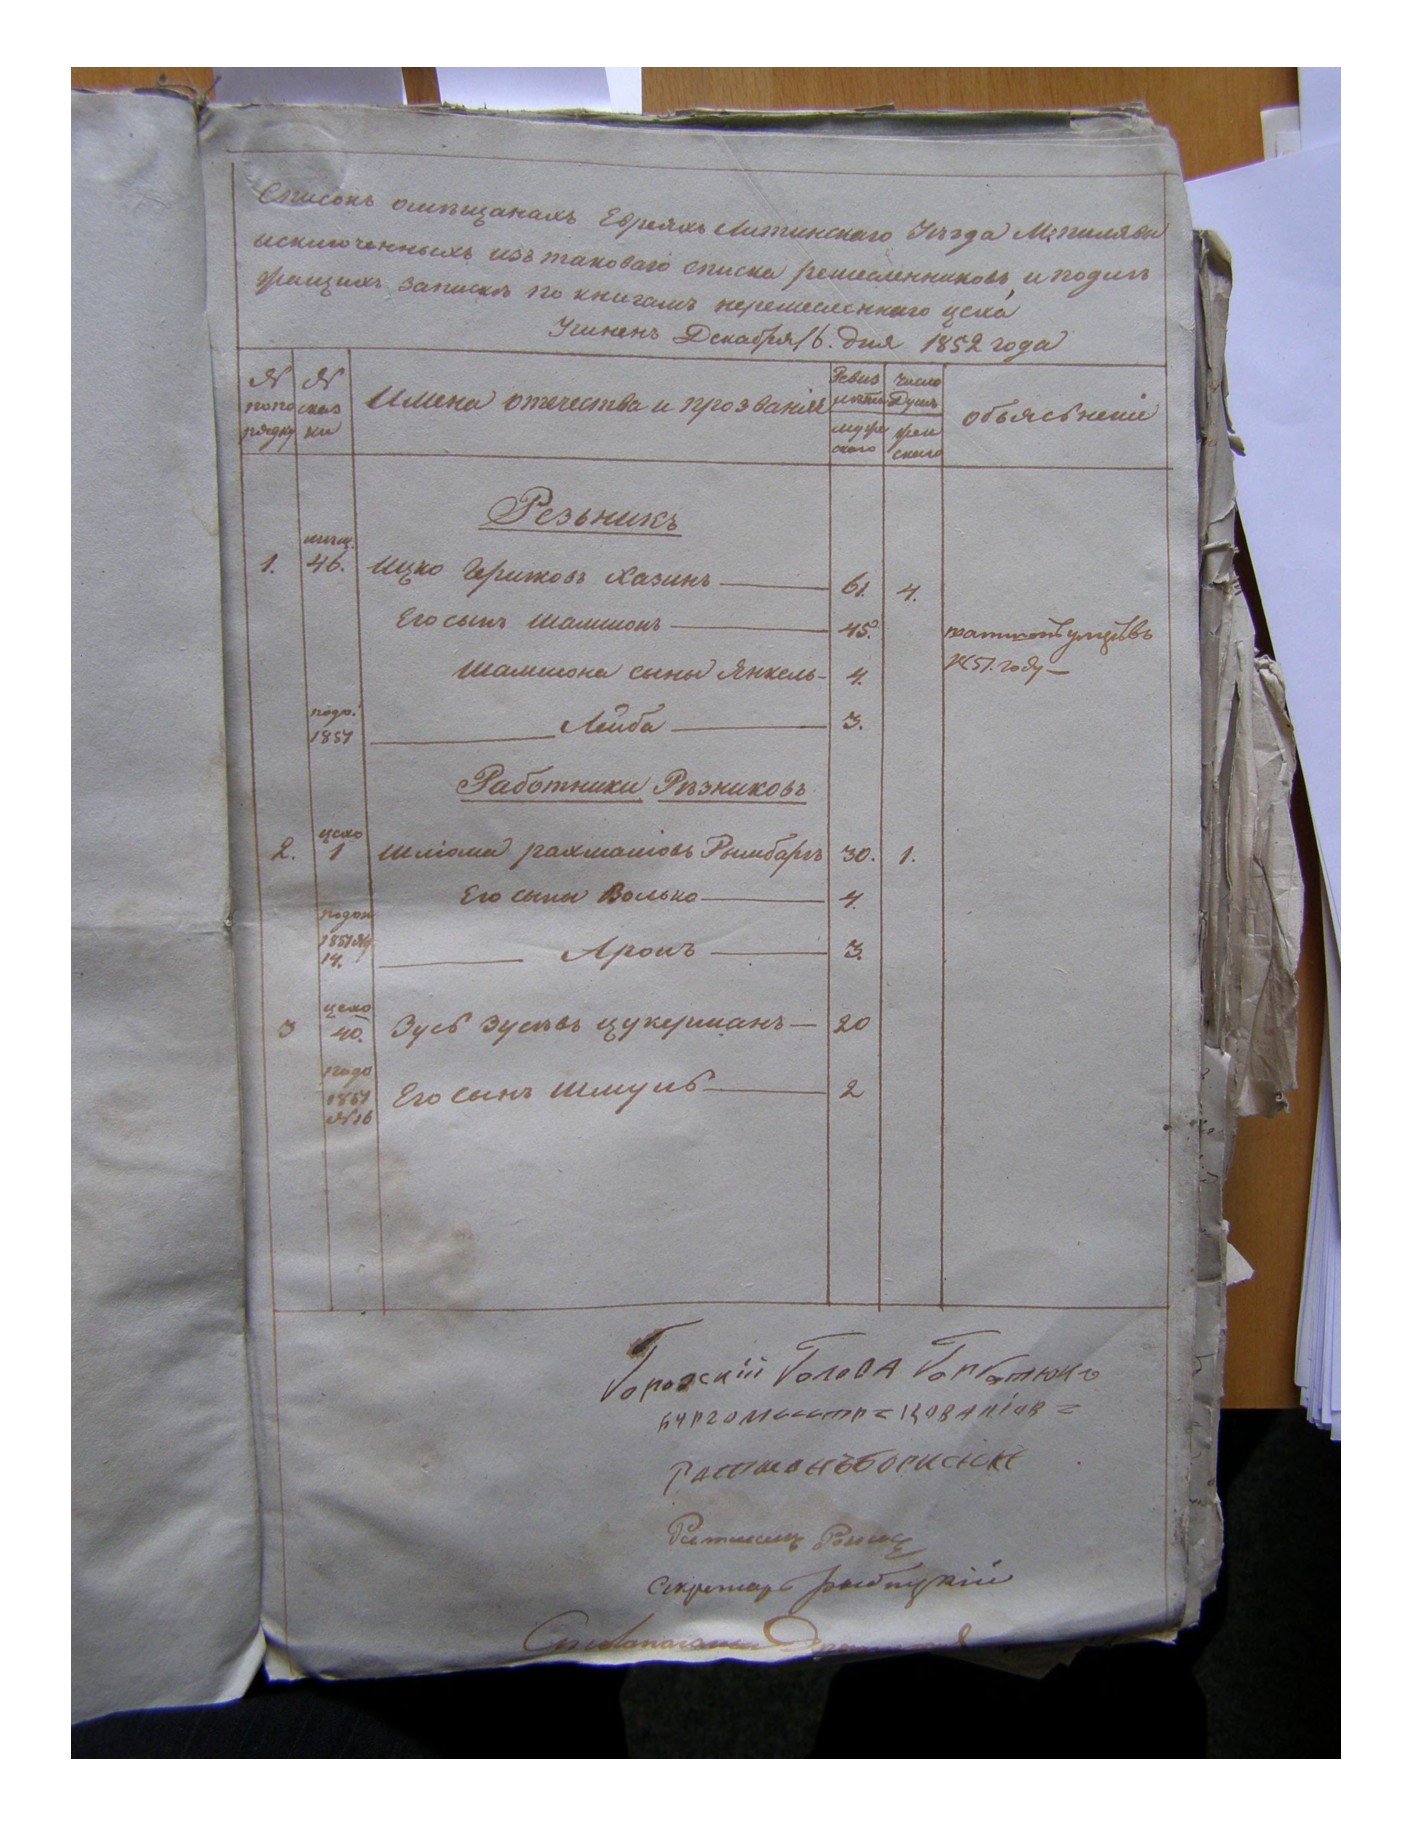 Списокъ омѣщанахъ Евреяхъ Литинскаго Уѣзда М: пилява
исключенныхъ изъ таковаго списка ремесленников, и подле
жащихъ записке по книгамъ неремесленнаго цеха,
Учиненъ Декабря 16. дня 1852 года
№ попо рядку
№ сказ ки
Имена отечества и прозваніе
Число Душъ
мужескаго
женскаго
объясненіе
Резьникъ
мѣщ.
1. 46. Ицко Гершковъ Хазинъ 61. 4.
Его сынъ Шамшонъ 45.
1851. году
Шамшона сыны Янкель 4.
подо.
1851 Лейба 3.
Работники Рѣзниковъ
цехо
2. 1 Шлiома рахмаiовъ Рымбаръ 30. 1.
Его сыны Волько 4.
подоп
1851 №
14. Аронъ 3.
цехо
3 40. Зусь Зусевъ цукерманъ 20
подо
1851
№ 16 Его сынъ Шмуль 2
Городскій Голова Горбатюкъ
Бургомистръ
Ратманъ Борисюкъ
Ратманъ
Секретарь